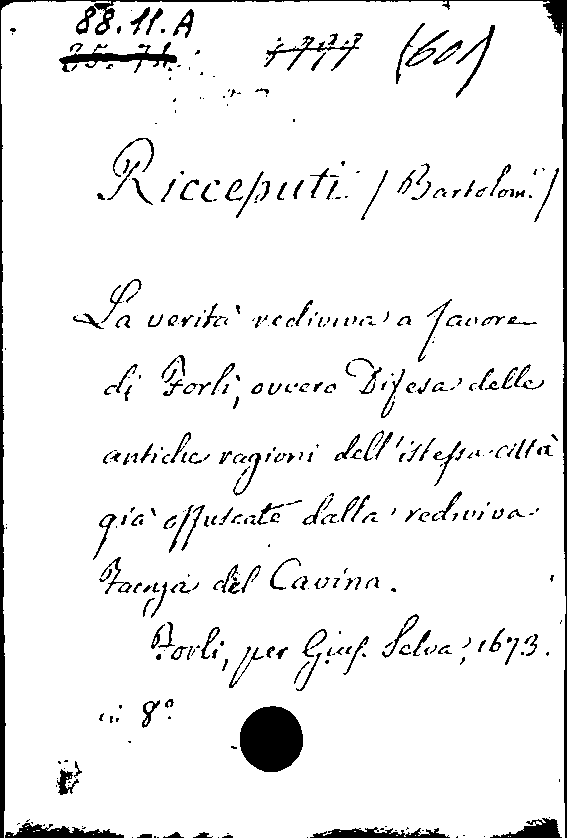 88.11.A
35. 71. 1777 (601)
Ricceputi (Bartolom.º)
La verità rediviva a favore
di Forlì, ovvero Difesa delle
antiche ragioni dell'istessa città
già offuscate dalla rediviva
Faenza del Cavina.
Forlì, per Gius. Selva, 1673.
in 8º